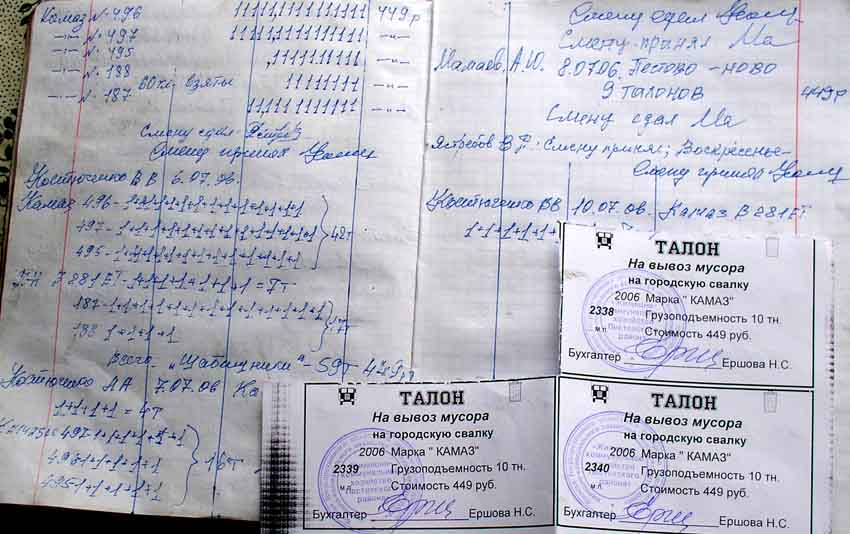 Камаз № 496 11111,11111111111 449р
—"— № 497 11111,111111111 —"—
—"— № 495 ,11111,11111111 —"—
—"— № 188 11111111 —"—
—"— № 187 60 взяты 11111,11111111111 —"—
Смену сдал
Смену принял
Костюченко В В 6.07.06.
Камаз 496 - 1+1+1+1+1+1+1+1+1+1+1+1
497 - 1+1+1+1+1+1+1+1+1+1+1 } 42т
495 - 1+1+1+1+1+1+1+1+1+1+1
881 ЕТ - 1+1+1+1+1+1+1 = 7т
187 - 1+1+1+1+1+1+1+1+1+1+1 } 17т
188 1+1+1+1
Всего „ - 59т
Костюченко АА 7.07.06
1+1+1+1 = 4т
497 1+1+1+1+1+1
496 1+1+1+1 } 16т
495 1+1+1+1+1
Смену сдал
Смену принял Ма
Мамаев. А.Ю. 8.07.06. Пестово - Ново
9 талонов 449р
Смену сдал Ма
Ястребов В Р: Смену принял; Воскресенье
Смену принял
Костюченко ВВ 10.07.06. Камаз В 881 ЕТ
1+1+1+1+1+
ТАЛОН
На вывоз мусора
на городскую свалку
2006 Марка " КАМАЗ"
2338 Грузоподъемность 10 тн.
м.п. Стоимость 449 руб.
Бухгалтер Ершова Н.С.
ТАЛОН
На вывоз мусора
на городскую свалку
2006 Марка " КАМАЗ"
2339 Грузоподъемность 10 тн.
м.п. Стоимость 449 руб.
Бухгалтер Ершова Н.С.
ТАЛОН
На вывоз мусора
на городскую свалку
2006 Марка " КАМАЗ"
2340 Грузоподъемность 10 тн.
м.п. Стоимость 449 руб.
Бухгалтер Ершова Н.С.